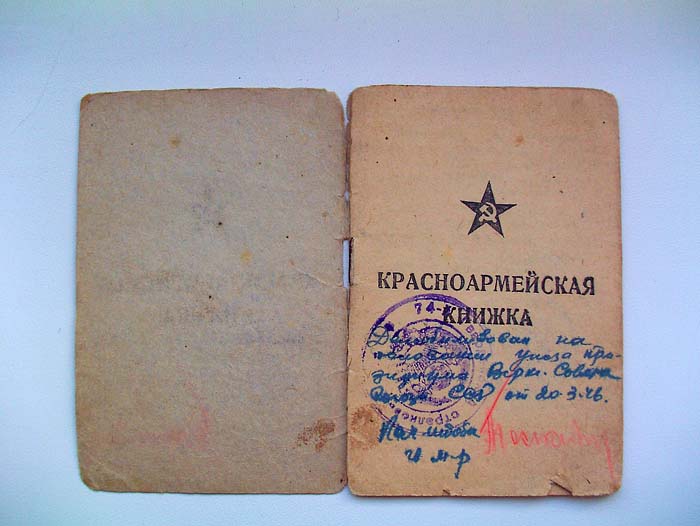 КРАСНОАРМЕЙСКАЯ
КНИЖКА
74
Демобилизован на
основании указа пре-
зидиума Верх. Совета
Союза ССР от 20.3.46.
Нач штаба
м-р